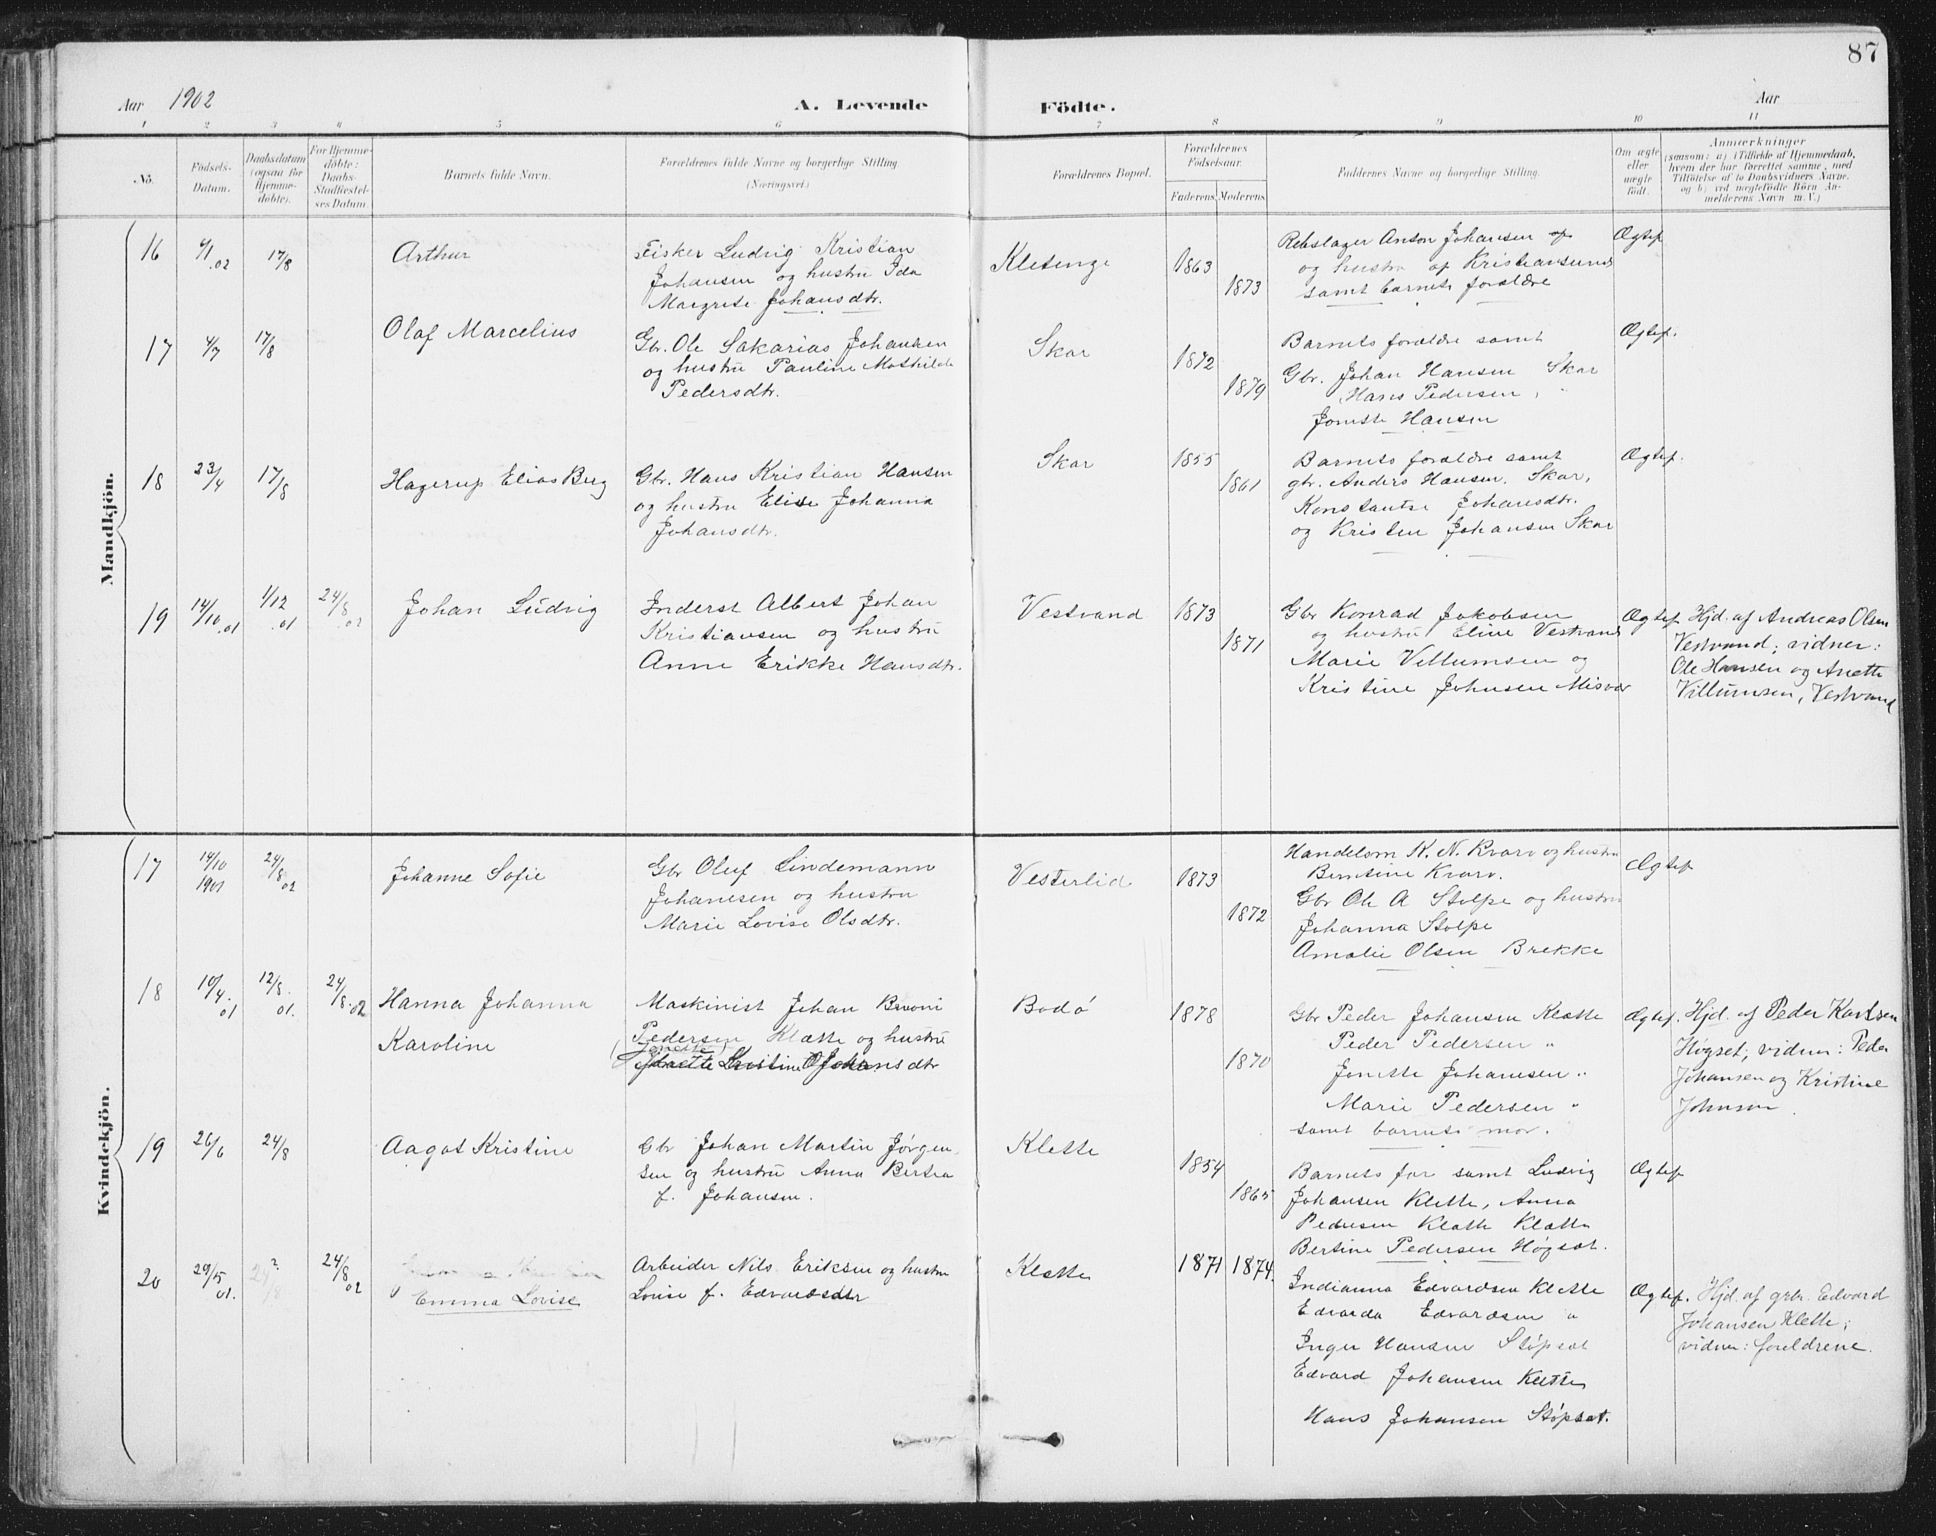 87
Aar 1902
A. Levende Födte.
Aar
1 2 3 4 5 6 7 8 9 10 11
No.
Födsels-
Datum.
Daabsdatum
(ogsaa for
Hjemme-
döbte).
For Hjemme-
döbte:
Daabs-
Stadfæstel-
ses Datum.
Barnets fulde Navn.
Forældrenes fulde Navne og borgerlige Stilling
(Næringsvei.)
Forældrenes Bopæl.
Forældrenes
Födselsaar.
Faderens. Moderens.
Faddernes Navne og borgerlige Stilling.
Om ægte
eller
uægte
födt.
Anmærkninger
(saasom: a) i Tilfælde af Hjemmedaab,
hvem der har forrettet samme, med
Tilföielse af to Daabsvidners Navne,
og b) ved uægtefödte Börn An-
melderens Navn m. V.)
Mandkjön.
16
.02
17/8
Arthur
Fisker Ludvig Kristian
Johansen og hustru Ida
Margrete Johansdtr.
Kletenge
1863
1873
Rebslager Anton Johansen
og hustru af Kristiansund
samt barnets forældre
Ægtef
17
4/7
17/8
Olaf Marcelius
Gbr. Ole Sakarias Johansen
og hustru Pauline Mathilde
Pedersdtr.
Skar
1872
1879
Barnets forældre samt
Gbr. Johan Hansen Skar
Hans Pedersen "
Jonette Hansen
Ægtef.
18
23/4
17/8
Hagerup Elias Berg
Gbr. Hans Kristian Hansen
og hustru Elise Johanna
Johansdtr.
Skar
1855
1861
Barnets forældre samt
gbr. Anders Hansen, Skar,
Konstantse Johansdtr.
og Kristen Johansen Skar
Ægtef.
19
14/10 .01
1/12 .01
24/8 .02
Johan Ludvig
Inderst Albert Johan
Kristiansen og hustru
Anne Erikke Hansdtr.
Vestvand
1873
1871
Gbr Konrad Jakobsen
og hustru Eline Vestvand
Marie Villumsen og
Kristine Johnsen Misvær
Ægtef
Hjd. af Andreas Olsen
Vestvand; vidner:
Ole Hansen og Anette
Villumsen, Vestvand
Kvindekjön.
17
14/10
1901
24/8 02
Johanne Sofie
Gbr Oluf Lindemann
Johansen og hustru
Marie Lovise Olsdtr.
Vesterlid
1873
1872
Handelsm K. N. Kvarv og hustru
Berntine Kvarv.
Gbr Ole A Stolpe og hustru
Johanna Stolpe
Amalie Olsen Brekke
Ægtef
18
19/4. 01
12/8. 01.
24/8. 02
Hanna Johanna
Karoline
Maskinist Johan Benoni
Pedersen Klætte og hustru
Jonette
Kristine Johansdtr
Bodø
1878
1870
Gbr Peder Johansen Klætte
Peder Pedersen "
Jonette Johansen "
Marie Pedersen "
samt barnets mor.
Ægtef.
Hjd. af Peder Karlsen
Høgset; vidner: Peder
Johansen og Kristine
Johnsen.
19
26/6
24/8
Aagot Kristine
Gbr Johan Martin Jørgen-
sen og hustru Anna Bertea
f. Johansen.
Klette
1854
1865
Barnets far samt Ludvig
Johansen Klette, Anna
Pedersen Klætte Klætte
Bertine Pedersen Høgset.
Ægtef
20
29/5 01.
24/8
24/8 02
Emma Lovise
Arbeider Nils Eriksen og hustru
Lovise f. Edvardsdtr
Klætte
1871
1874.
Indianna Edvardsen Klette
Edvarda Edvardsen "
Inger Hansen Støpset
Edvard Johansen Klette
Hans Johansen Støpset.
Ægtef.
Hjd. af grbr. Edvard
Johansen Klette;
vidner: foreldrene.